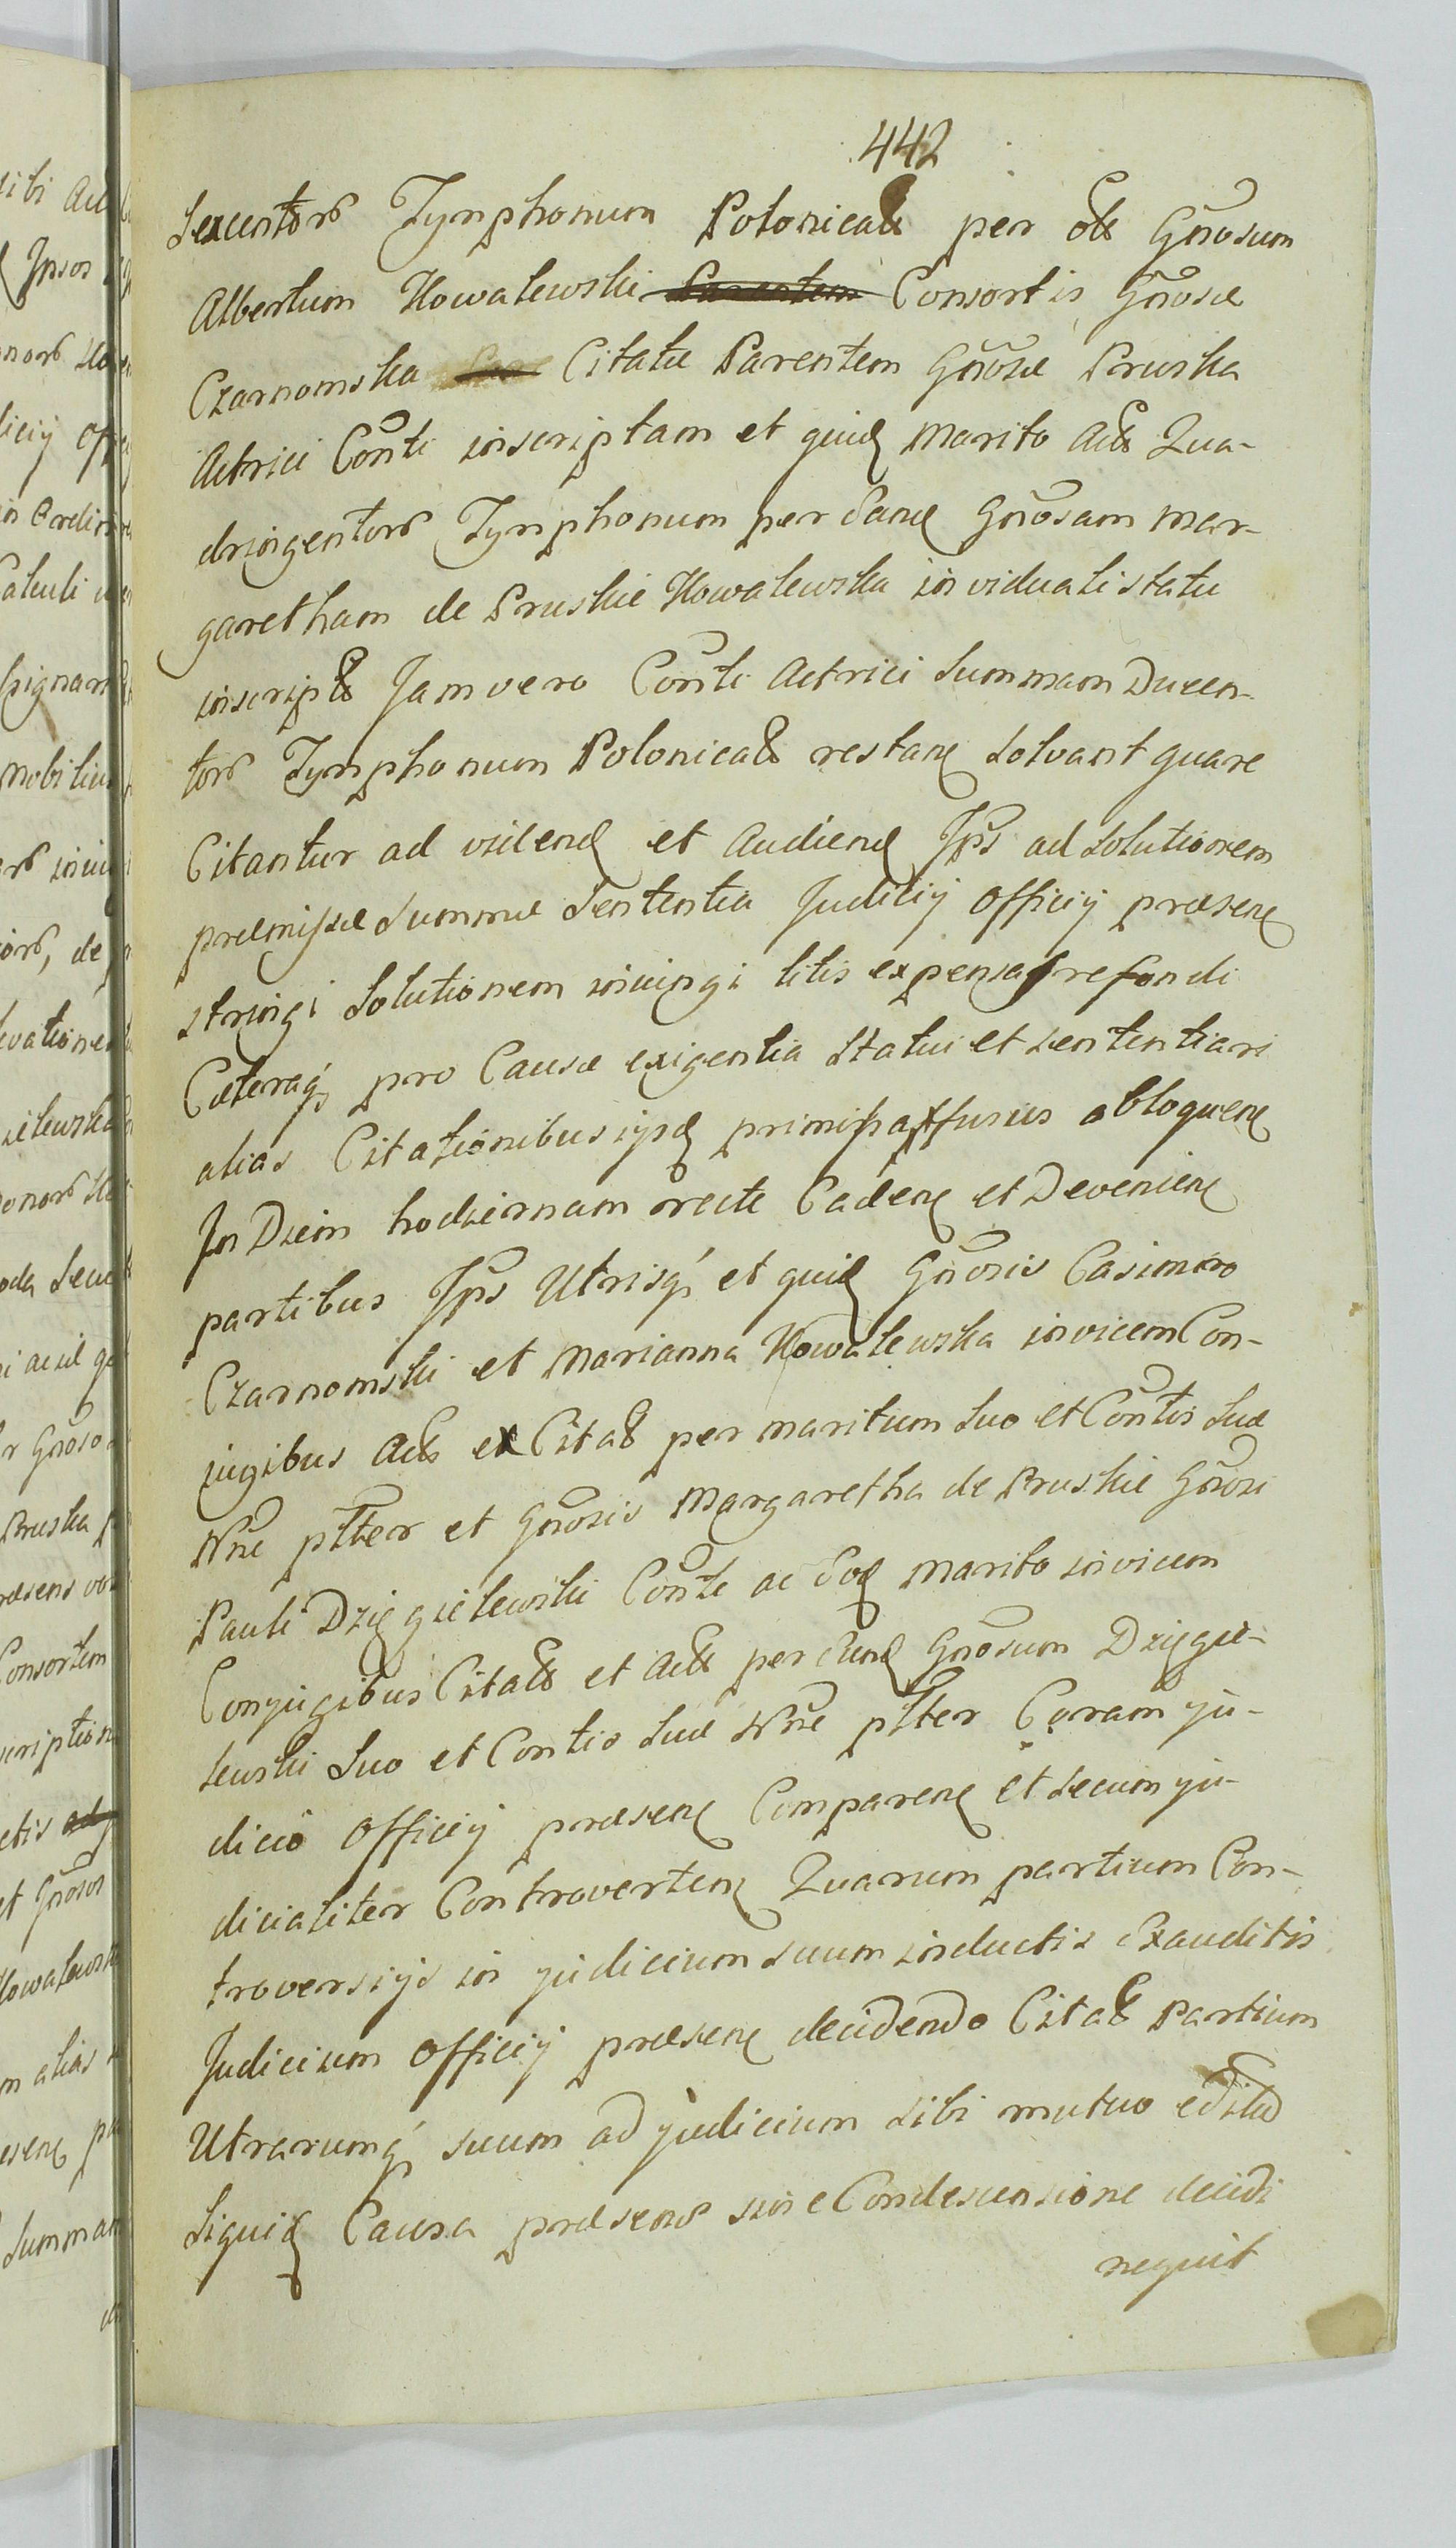 442
Sexcentors Tynphonum Polonical per olt Gnosum
Albertum Kowalewski Parentem Consortis Gnosæ
Czarnomska Citatæ Parentem Gnosæ Pruska
Actrici Conti inscriptam et quid Marito Act Qua-
dringentors Tynphonum per Gnosam Mar-
garetham de Pruskie Kowalewska in viduali statu
inscript Jam vero Conti Actrici Summam Ducen-
tors Tynphonum Polonical restan solvant quare
Citantur ad viden et Audien Ips ad Solutionem
præmissæ Summæ Sententia Judicij Officij præsen
stringi Solutionem iniungi litis expensas refondi
Cæteraq pro Causæ exigentia Statui et sententiari
alias Citationibus ijsd fusius obloquen
In Diem hodiernam recte Caden et Devenien
partibus Ips Utrisq et quid Gnosis Casimiro
Czarnomski et Marianna Kowalewska invicem Con-
iugibus Act ex Citat per maritum Suo et Contis Suæ
Nne ptter et Gnosis Margaretha de Pruskie Gnosi
Pauli Dzięgielewski Conte ac Eod Marito invicem
Conjugibus Citat et Act per Eund Gnosum Dzięgie-
lewski Suo et Contis Suæ Nne ptter Coram ju-
dicio Officij præsen Comparen et secum ju-
dicialiter Controverten Quarum partium Con-
troversijs in judicium suum inductis Exauditis
Judicium Officij præsen decidendo Citat Partium
Utrarumq suum ad judicium sibi mutuo edita
Siquid Causa præsens sine Condescensione decidi
nequit